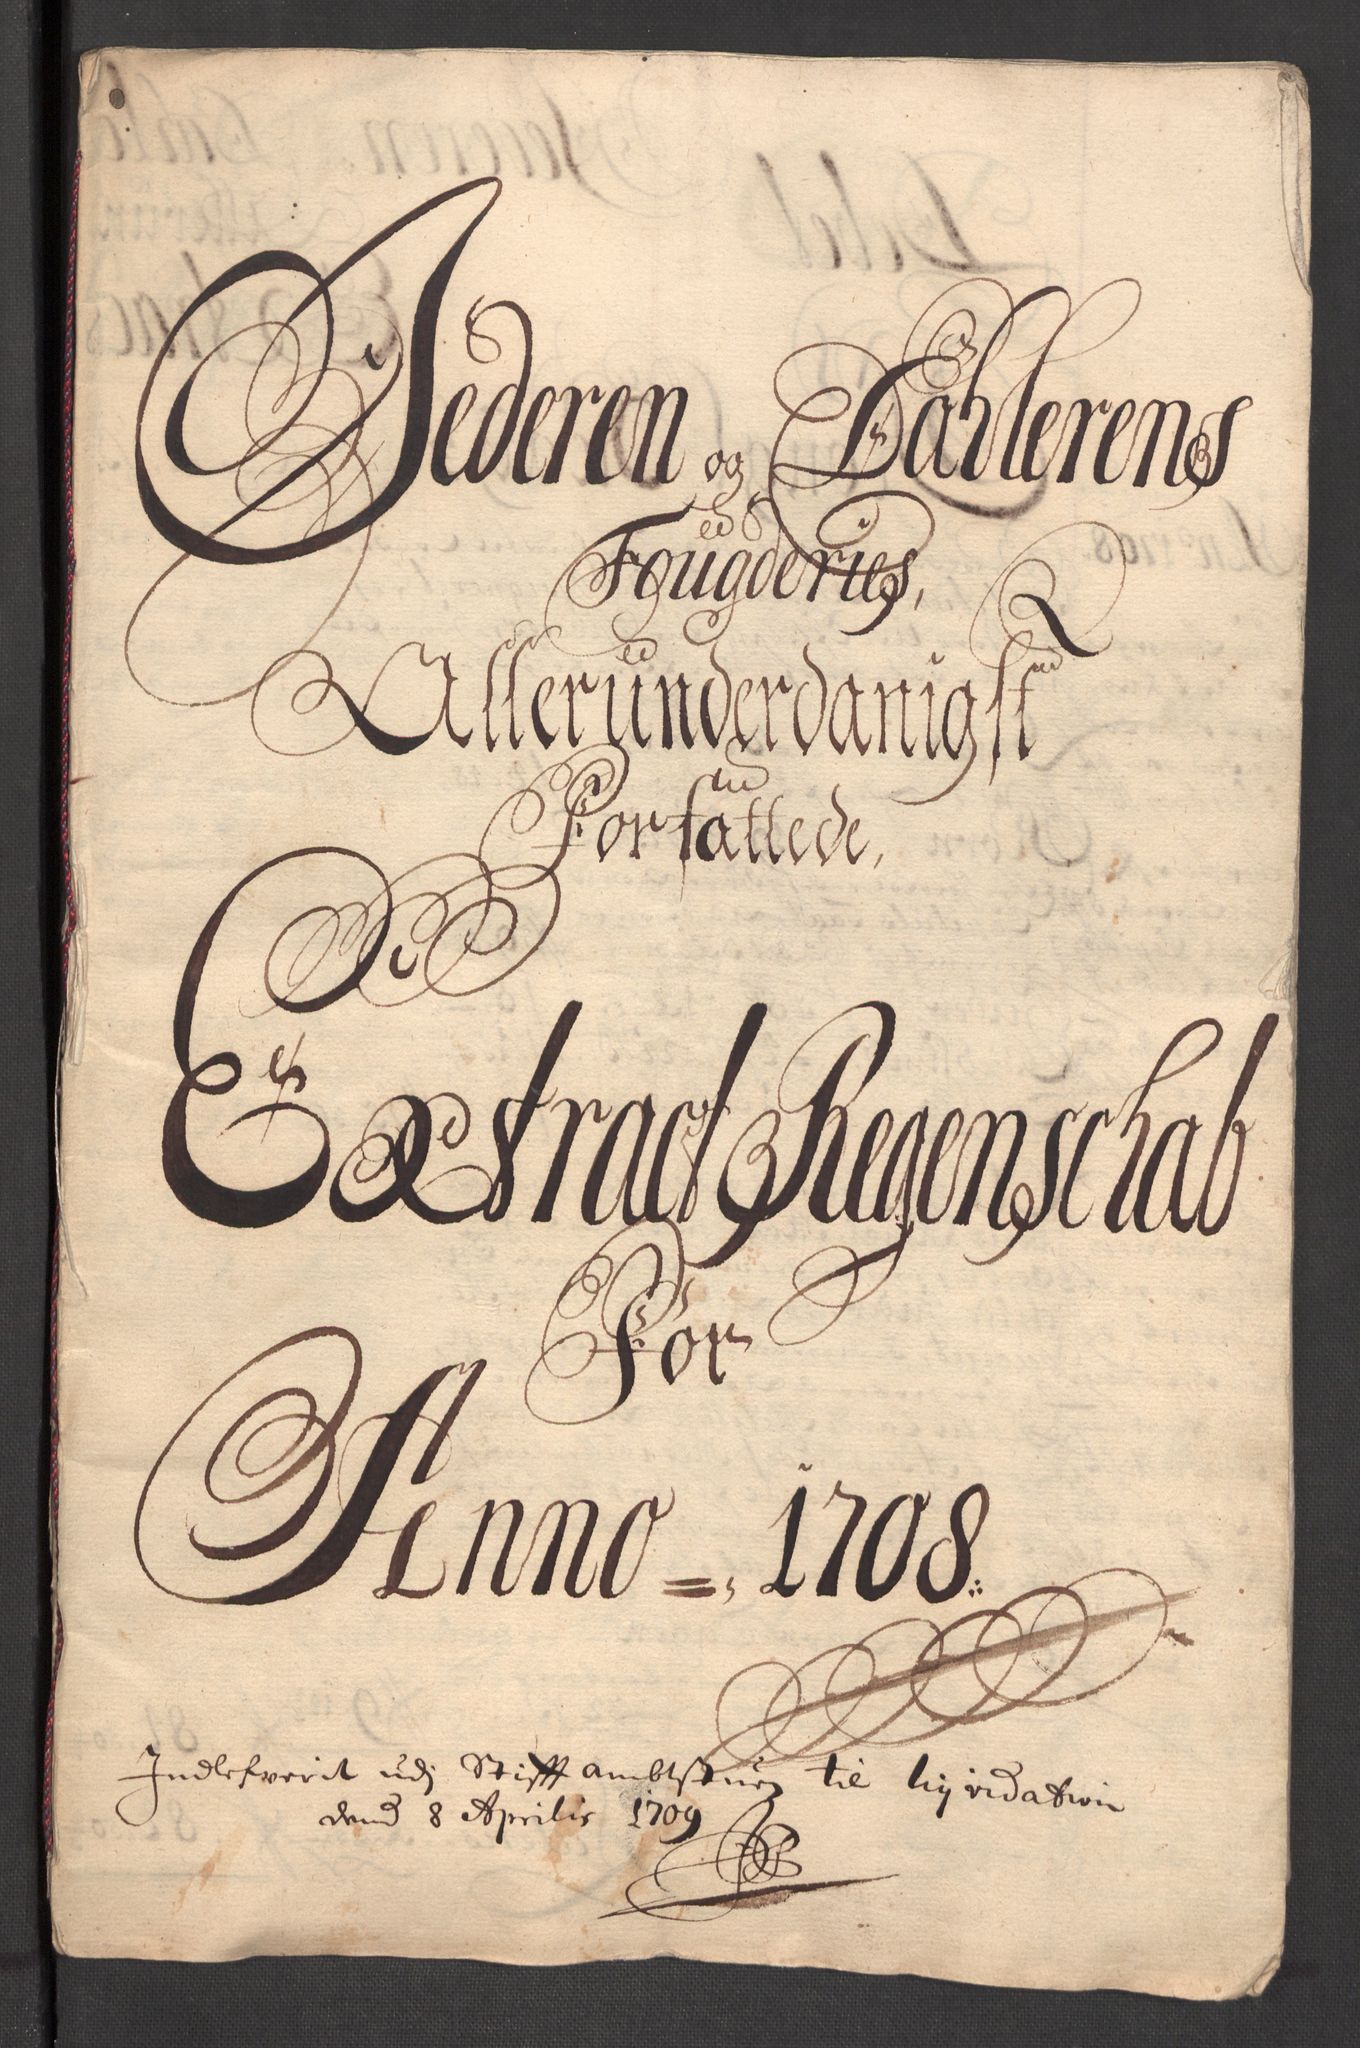 Jederen og Dahlerens
Fougderies,
Allerunderdanigst
Forfattede,
Extract Regenschab
For
Anno =, 1708.
Indlefverit udj Stifft ambtstuen til liqvidation
dend 8 Aprilis 1709